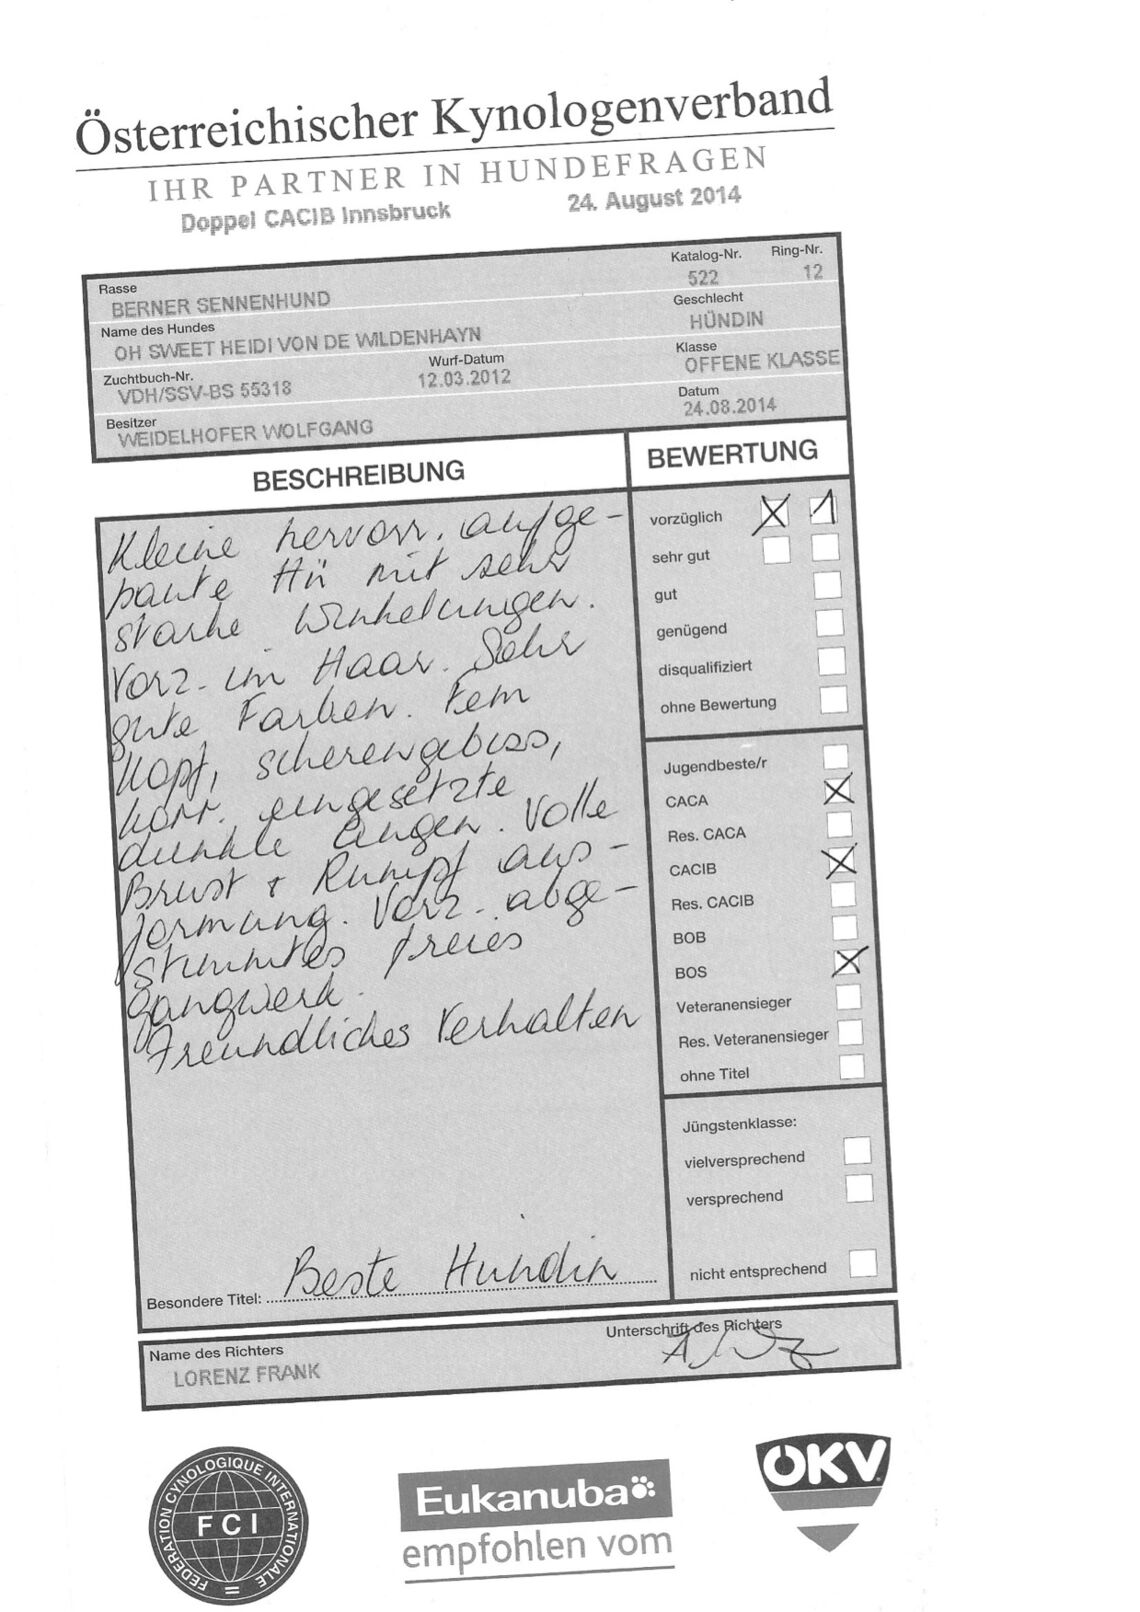 Österreichischer Kynologenverband
IHR PARTNER IN HUNDEFRAGEN
Doppel CACIB Innsbruck 24. August 2014
Rasse Katalog-Nr. Ring-Nr.
BERNER SENNENHUND 522 12
Name des Hundes Geschlecht
OH SWEET HEIDI VON DE WILDENHAYN HÜNDIN
Zuchtbuch-Nr. Wurf-Datum Klasse
VDH/SSV-BS 55318 12.03.2012 OFFENE KLASSE
Besitzer Datum
WEIDELHOFER WOLFGANG 24.08.2014
BESCHREIBUNG
Kleine hervorr. aufge-
baute Hü mit sehr
starke Winkelungen.
Vorz. im Haar. Sehr
gute Farben. Fem
Kopf, scherengebiss,
korr. eingesetzte
dunkle Augen. Volle
Brust + Rumpf aus-
formung. Vorz. abge-
stimmtes freies
gangwerk.
Freundliches Verhalten
Besondere Titel: Beste Hündin
BEWERTUNG
vorzüglich X 1
sehr gut
gut
genügend
disqualifiziert
ohne Bewertung
Jugendbeste/r
CACA X
Res. CACA
CACIB X
Res. CACIB
BOB
BOS X
Veteranensieger
Res. Veteranensieger
ohne Titel
Jüngstenklasse:
vielversprechend
versprechend
nicht entsprechend
Name des Richters Unterschrift des Richters
LORENZ FRANK
FEDERATION CYNOLOGIQUE INTERNATIONALE
FCI
Eukanuba
empfohlen vom
ÖKV